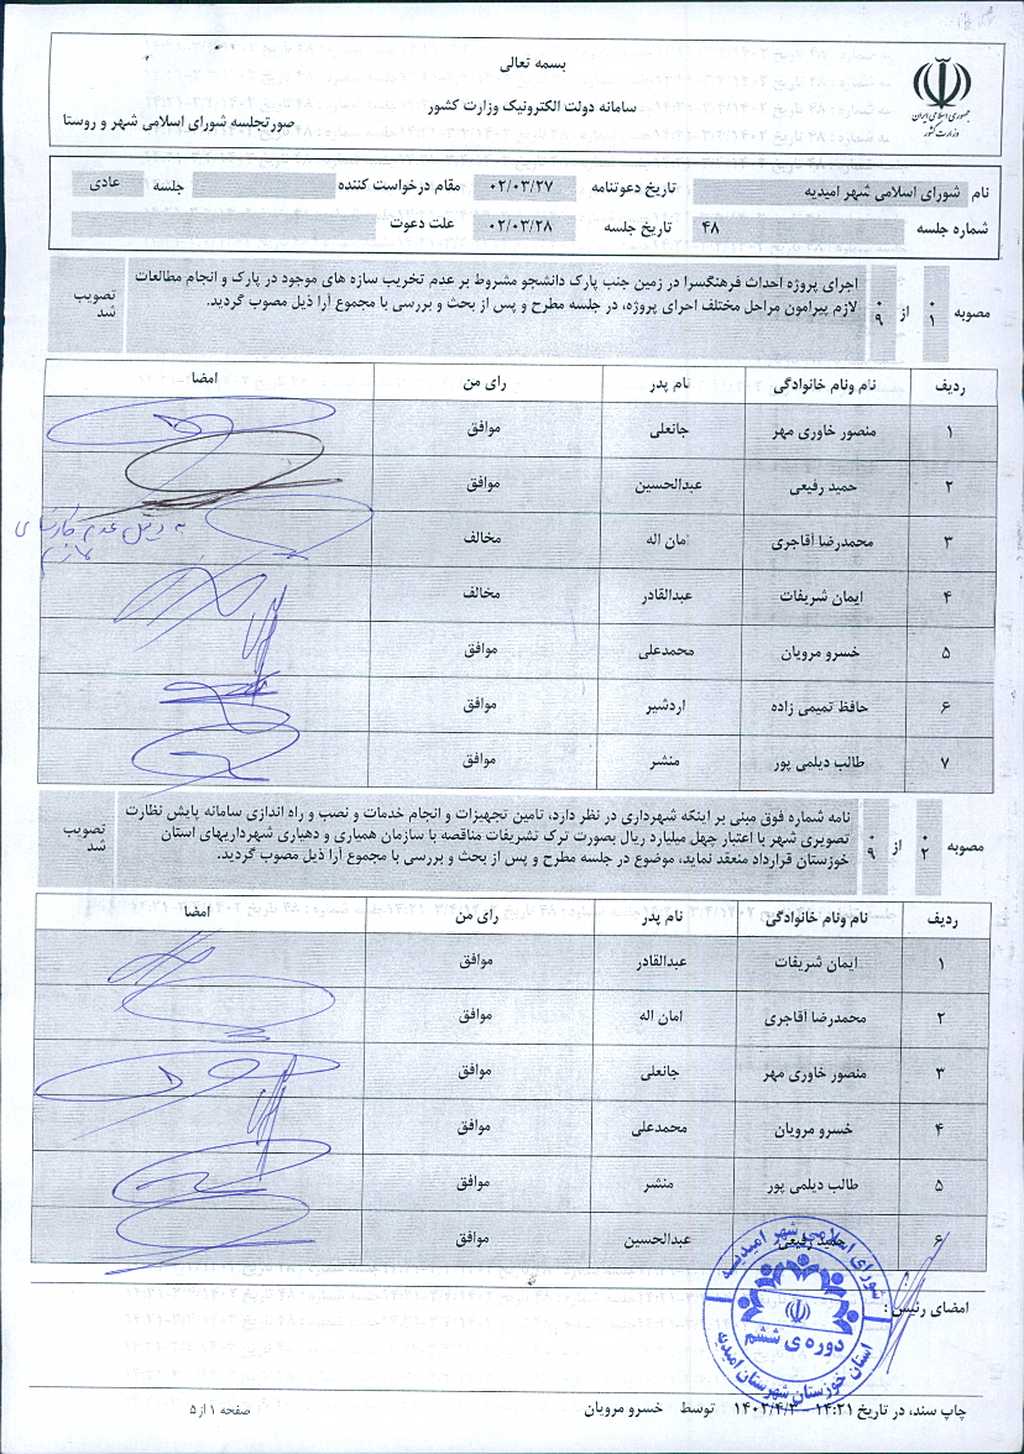 بسمه تعالی
سامانه دولت الکترونیک وزارت کشور
صورتجلسه شورای اسلامی شهر و روستا
جمهوری اسلامی ایران
وزارت کشور
نام شورای اسلامی شهر امیدیه تاریخ دعوتنامه ۰۲/۰۳/۲۷ مقام درخواست کننده جلسه عادی
شماره جلسه ۴۸ تاریخ جلسه ۰۲/۰۳/۲۸ علت دعوت
مصوبه ۰۱ از ۰۹ اجرای پروژه احداث فرهنگسرا در زمین جنب پارک دانشجو مشروط بر عدم تخریب سازه های موجود در پارک و انجام مطالعات
لازم پیرامون مراحل مختلف اجرای پروژه، در جلسه مطرح و پس از بحث و بررسی با مجموع آرا ذیل مصوب گردید. تصویب شد
ردیف نام ونام خانوادگی نام پدر رای من امضا
۱ منصور خاوری مهر جانعلی موافق
۲ حمید رفیعی عبدالحسین موافق
۳ محمدرضا آقاجری امان اله مخالف
۴ ایمان شریفات عبدالقادر مخالف
۵ خسرو مرویان محمدعلی موافق
۶ حافظ تمیمی زاده اردشیر موافق
۷ طالب دیلمی پور منشر موافق
مصوبه ۰۲ از ۰۹ نامه شماره فوق مبنی بر اینکه شهرداری در نظر دارد، تامین تجهیزات و انجام خدمات و نصب و راه اندازی سامانه پایش نظارت
تصویری شهر با اعتبار چهل میلیارد ریال بصورت ترک تشریفات مناقصه با سازمان همیاری و دهیاری شهرداریهای استان
خوزستان قرارداد منعقد نماید، موضوع در جلسه مطرح و پس از بحث و بررسی با مجموع آرا ذیل مصوب گردید. تصویب شد
ردیف نام ونام خانوادگی نام پدر رای من امضا
۱ ایمان شریفات عبدالقادر موافق
۲ محمدرضا آقاجری امان اله موافق
۳ منصور خاوری مهر جانعلی موافق
۴ خسرو مرویان محمدعلی موافق
۵ طالب دیلمی پور منشر موافق
۶ حمید رفیعی عبدالحسین موافق
امضای رئیس :
شورای اسلامی شهر امیدیه
دوره ی ششم
استان خوزستان شهرستان امیدیه
چاپ سند، در تاریخ ۱۴:۲۱ - ۱۴۰۲/۴/۲ توسط خسرو مرویان
صفحه ۱ از ۵